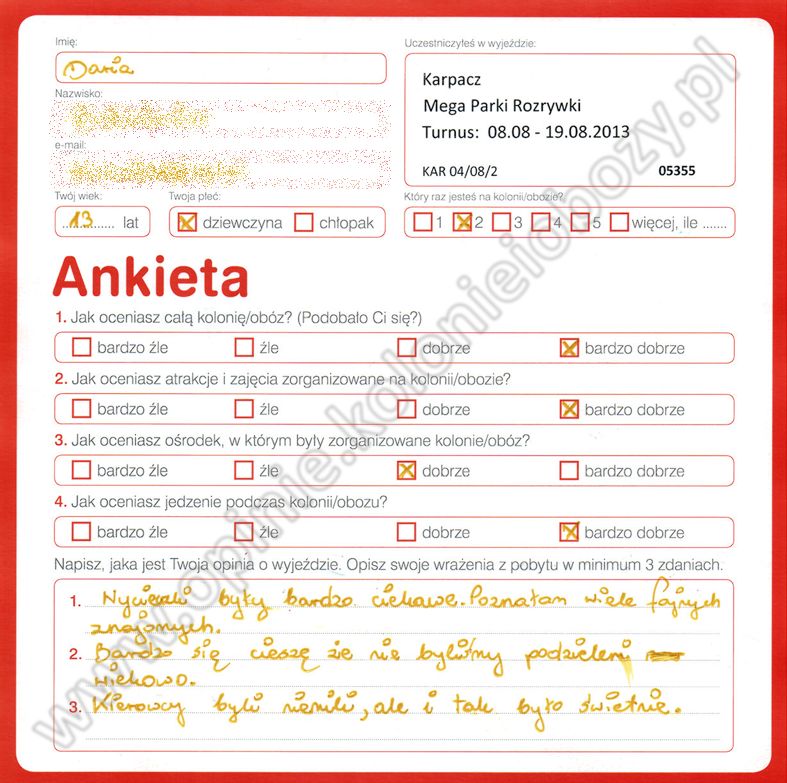 Imię:
Daria
Uczestniczyłeś w wyjeździe:
Karpacz
Mega Parki Rozrywki
Turnus: 08.08 - 19.08.2013
KAR 04/08/2 05355
Nazwisko:
e-mail:
Twój wiek:
13 lat
Twoja płeć:
dziewczyna chłopak
Który raz jesteś na kolonii/obozie?
1 2 3 4 5 więcej, ile .......
Ankieta
1. Jak oceniasz całą kolonię/obóz? (Podobało Ci się?)
bardzo źle źle dobrze bardzo dobrze
2. Jak oceniasz atrakcje i zajęcia zorganizowane na kolonii/obozie?
bardzo źle źle dobrze bardzo dobrze
3. Jak oceniasz ośrodek, w którym były zorganizowane kolonie/obóz?
bardzo źle źle dobrze bardzo dobrze
4. Jak oceniasz jedzenie podczas kolonii/obozu?
bardzo źle źle dobrze bardzo dobrze
Napisz, jaka jest Twoja opinia o wyjeździe. Opisz swoje wrażenia z pobytu w minimum 3 zdaniach.
1. były bardzo ciekawe. Poznałam wiele fajnych
znajomych.
2. Bardzo się cieszę że nie byliśmy podzieleni
wiekowo.
3. Kierowcy byli niemili, ale i tak było świetnie.
www.opinie.kolonieiobozy.pl